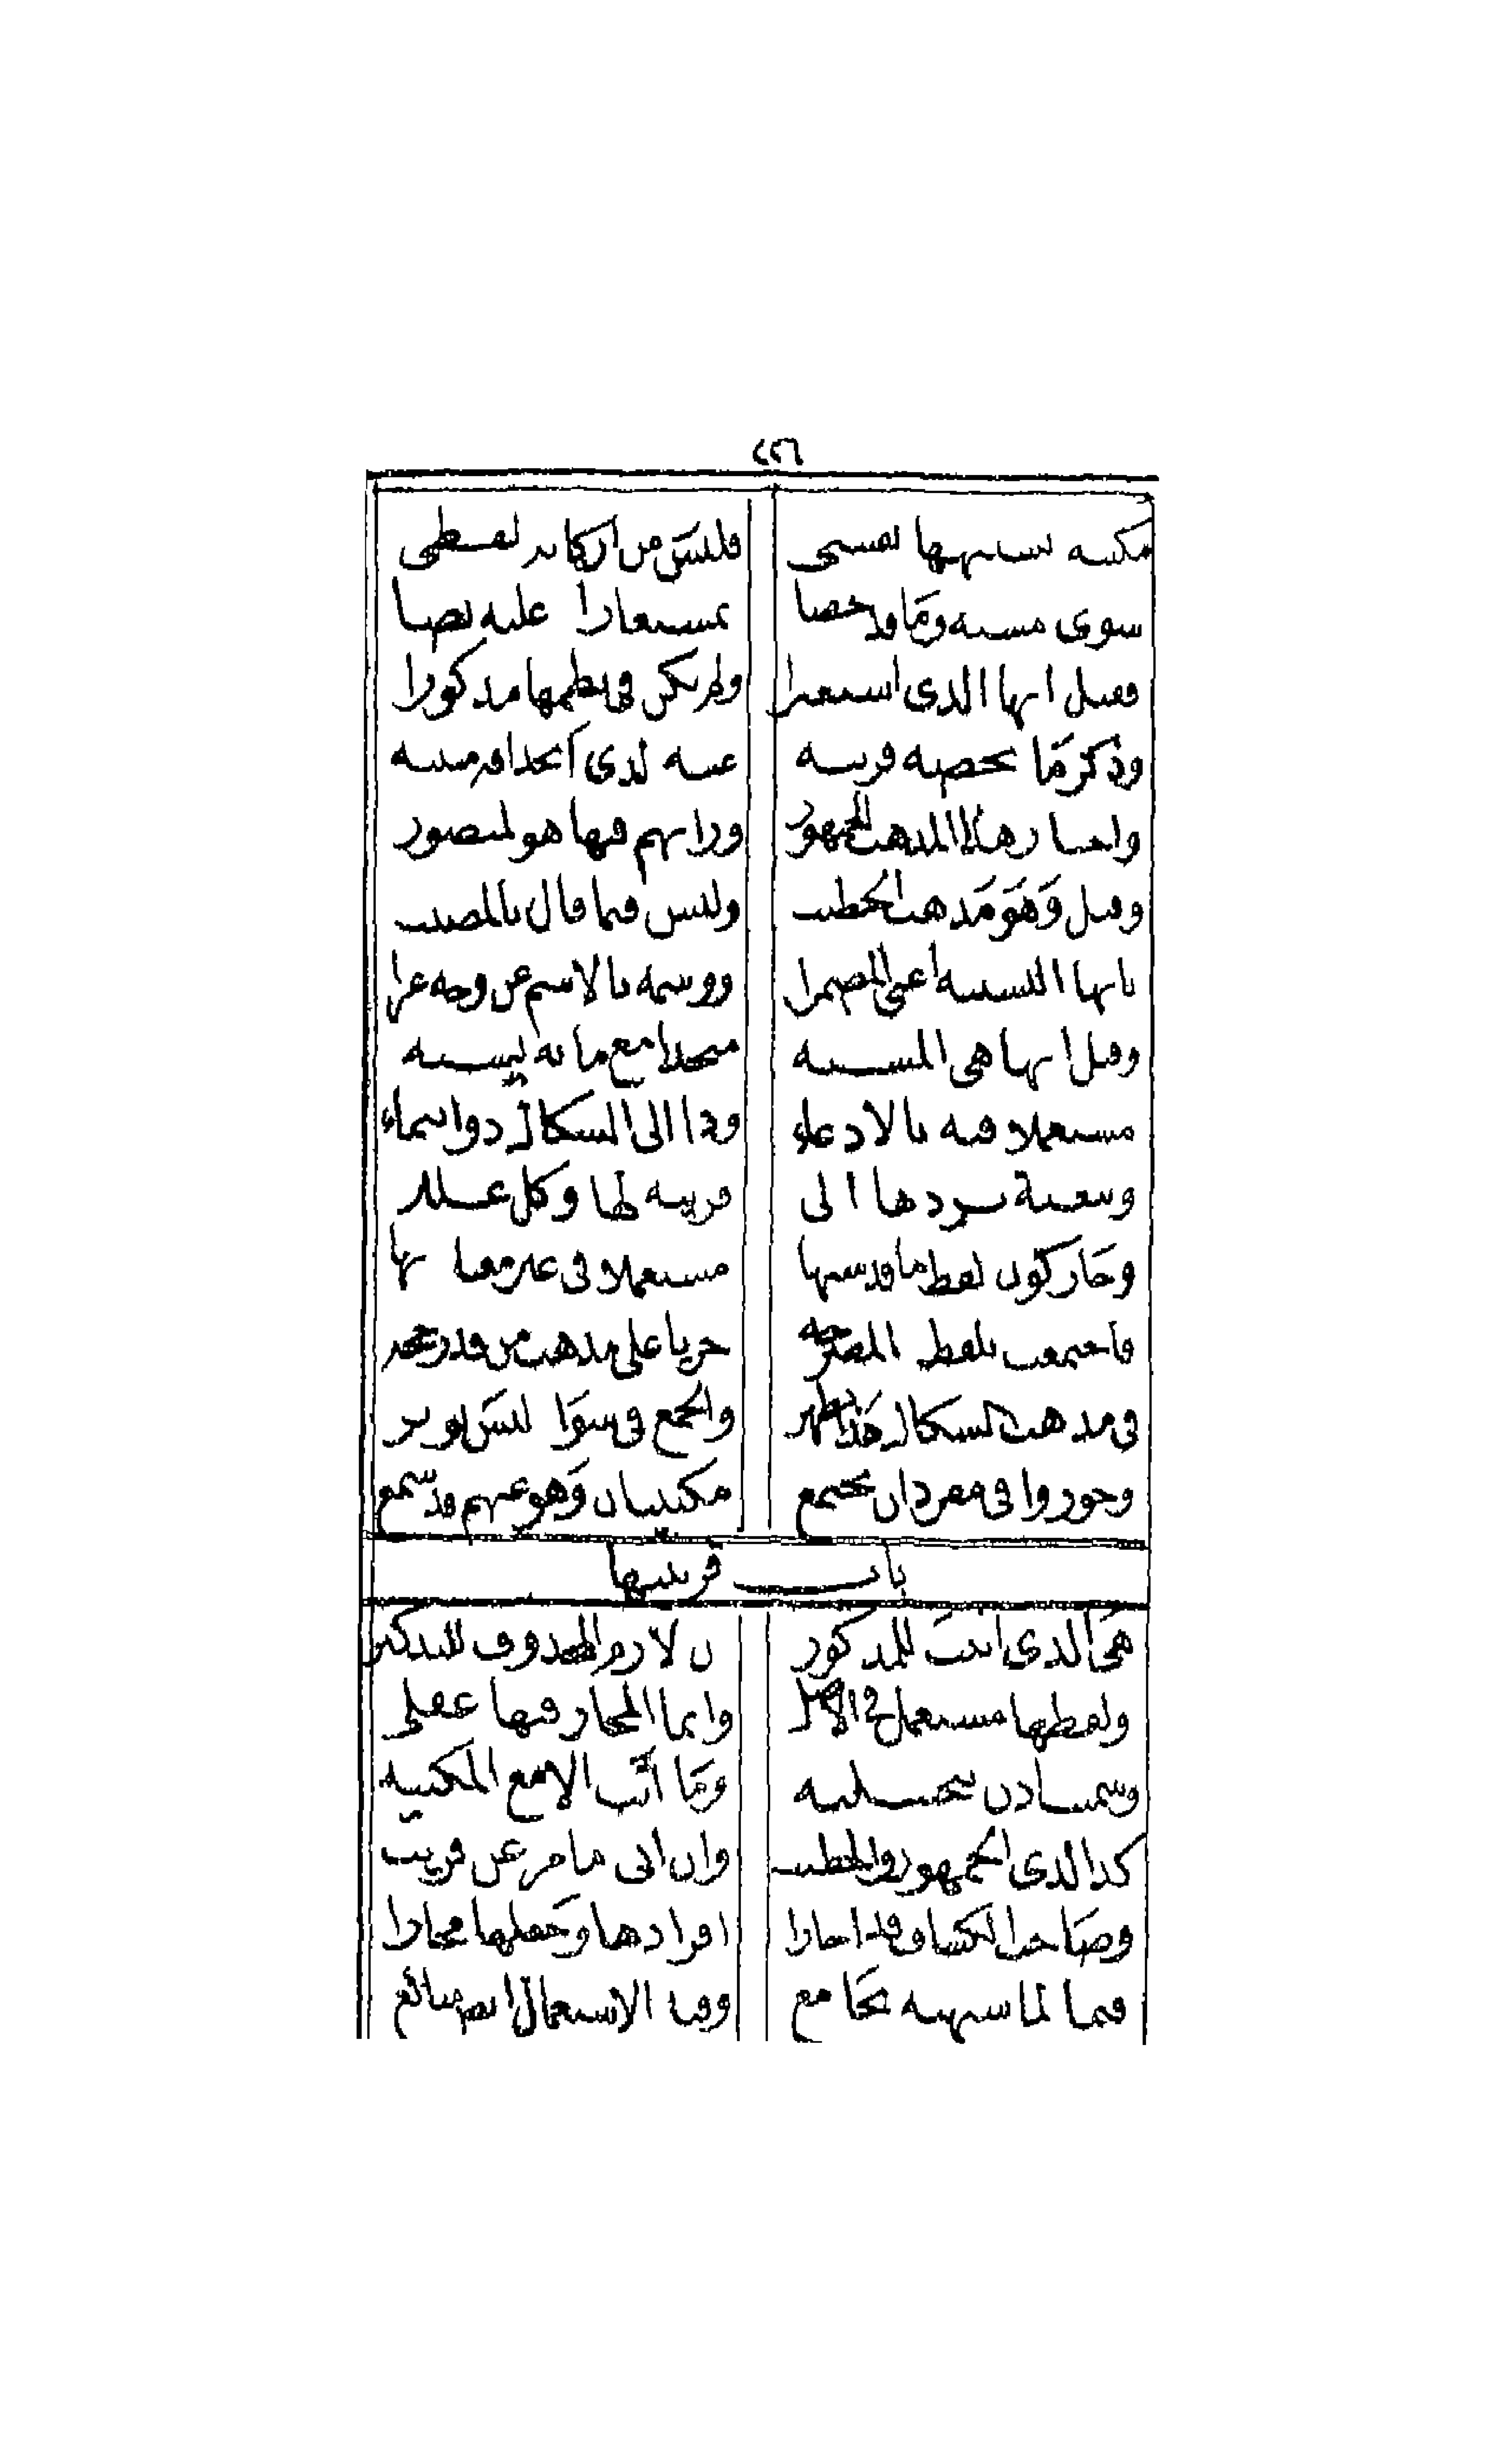 ٢٢٦
مكنيه تشبيهها نفسي فليس من اركانه لفظي
سوى مشبه وما قد خصا بمستعارا عليه نصا
فقيل انها الذى استعيرا ولم يكن فى نظمها مذكورا
وذكر ما يخصه قرينه عنه لدى
واختار هذا المذهب الجمهور ورايهم فيها هو المنصور
وقيل وهو مذهب الخطيب وليس فيما قال بالمصيب
بانها التشبيه اعنى المضمرا ووسمه بالاسم عن وجه عرا
وقيل انها هى المشبه متحدا مع ما به يشبه
مستعملا فيه بالادعاء وذا الى السكاك ذو انتماء
وتبعية يردها الى قرينه لها وكل عللا
وجاز كون لفظ ما قد شبها مستعملا فى غير معنا بها
فاجتمعت بلفظ المصرحه جريا على مذهب من قد رجحه
فى مذهب السكاك هذا يظهر والجمع فى سوا ليس يوثر
وجوزوا فى مفرد ان يجتمع مكنيتان وهو عنهم قد سمع
باب قرينتها
هى الذى اثبت للمذكور من لازم المحذوف للتذكير
ولفظها مستعمل فى الاصل وانما المجاز فيها عقلى
وسميت اذن تخييليه وما اتت الا مع المكنيه
كذا لدى الجمهور والخطيب وان ابى ما مر عن قريب
وصاحب الكشاف قد اجازا افرادها وجعلها مجازا
فيما لما شبهه بجامع وفيه الاستعمال ايضا شائع